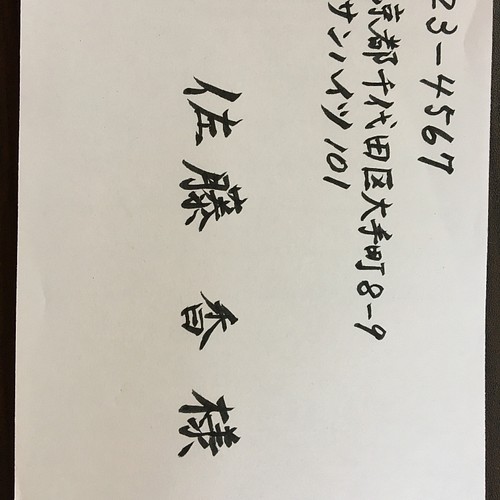 23-4567
京都千代田区大手町8-9
サンハイツ101
佐藤 香 様